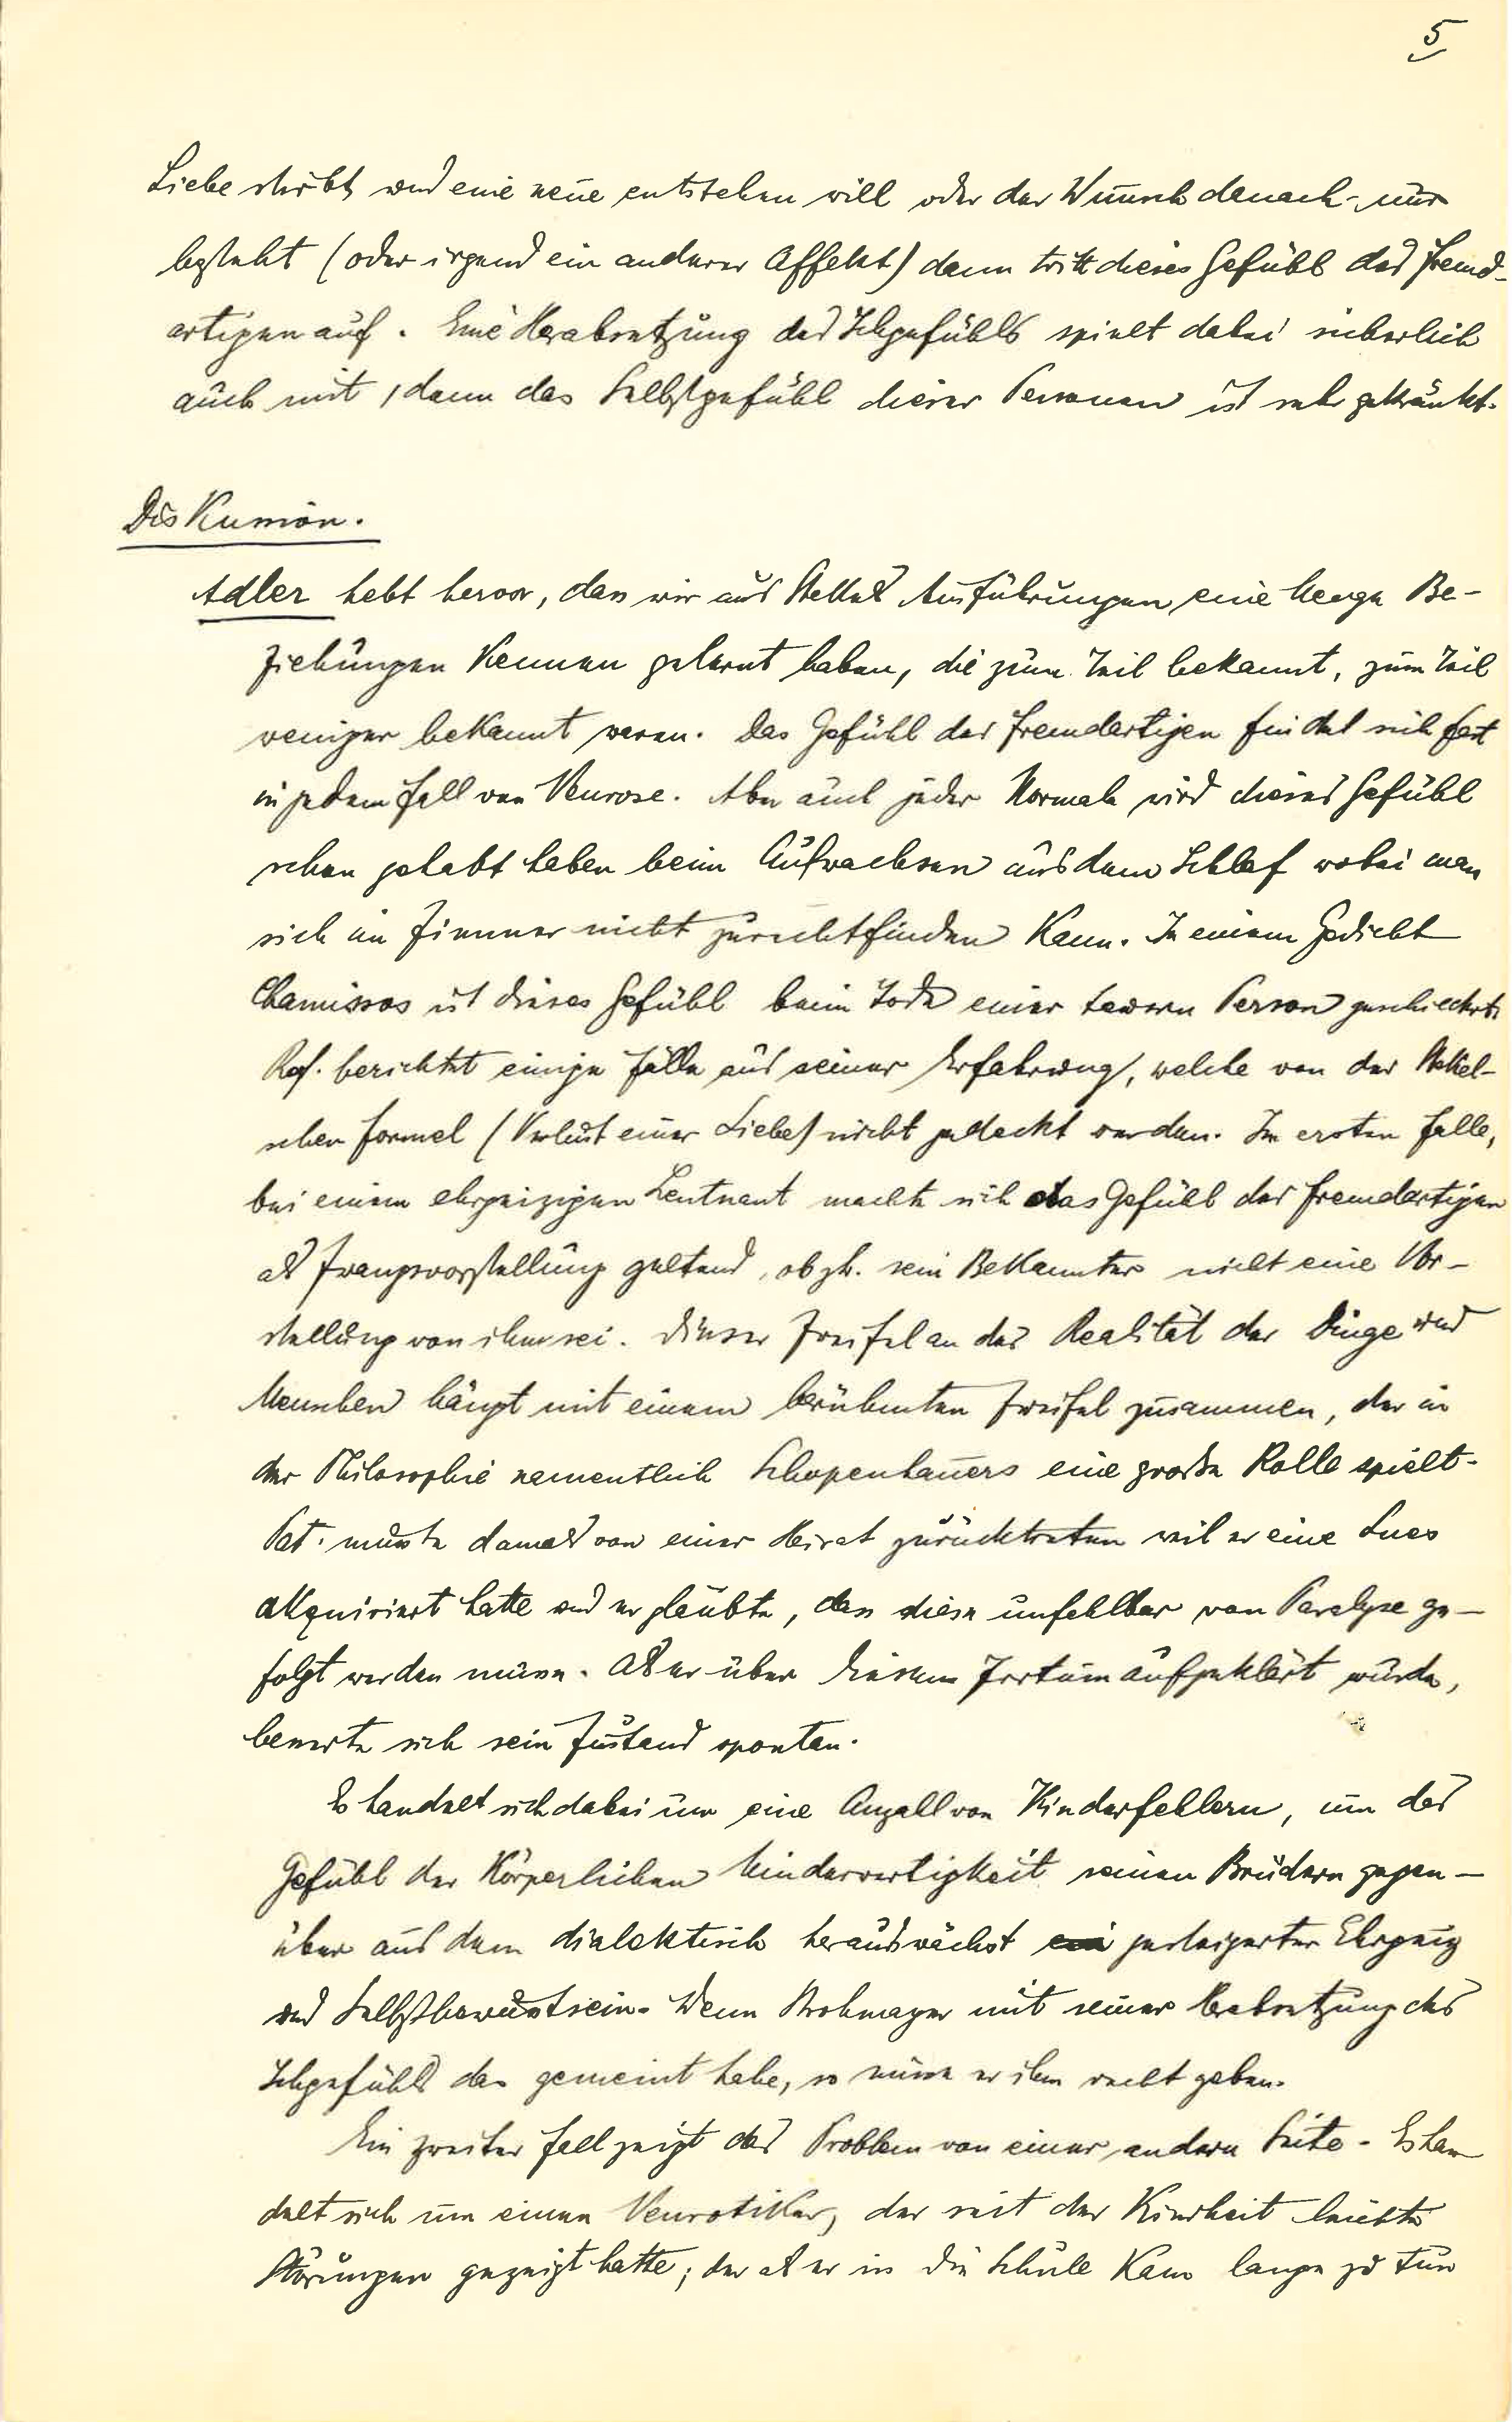 5
Liebe stirbt und eine neue entstehen will oder der Wunsch danach nur
besteht (oder irgend ein anderer Affekt) dann tritt dieses Gefühl des Fremd-
artigen auf. Eine Herabsetzung des Ichgefühls spielt dabei sicherlich
auch mit, denn das Selbstgefühl dieser Personen ist sehr gekränkt.
Diskussion.
Adler hebt hervor, dass wir aus Stekels Ausführungen eine Menge Be-
ziehungen kennen gelernt haben, die zum Teil bekannt, zum Teil
weniger bekannt waren. Das Gefühl des Fremdartigen findet sich fast
in jedem Fall von Neurose. Aber auch jeder Normale wird dieses Gefühl
schon gehabt haben beim Aufwachsen aus dem Schlaf wobei man
sich im Zimmer nicht zurechtfinden kann. In einem Gedicht
Chamissos ist dieses Gefühl beim Tode einer teuern Person geschildert.
Ref. berichtet einige Fälle aus seiner Erfahrung, welche von der Stekel-
schen Formel (Verlust einer Liebe) nicht gedeckt werden. Im ersten Falle,
bei einem ehrgeizigen Leutnant machte sich das Gefühl des Fremdartigen
als Zwangsvorstellung geltend, ob zb. sein Bekannter nicht eine Vor-
stellung von ihm sei. Dieser Zweifel an der Realität der Dinge und
Menschen hängt mit einem berühmten Zweifel zusammen, der in
der Philosophie namentlich Schopenhauers eine große Rolle spielt.
Pat. musste damals von einer Heirat zurücktreten weil er eine Lues
akquiriert hatte und er glaubte, dass diese unfehlbar von Paralyse ge-
folgt werden müsse. Als er über diesen Irrtum aufgeklärt wurde,
besserte sich sein Zustand spontan.
Es handelt sich dabei um eine Anzahl von Kinderfehlern, um das
Gefühl der körperlichen Minderwertigkeit seinen Brüdern gegen-
über aus dem dialektisch herauswächst gesteigerter Ehrgeiz
und Selbstbewusstsein. Wenn Strohmayer mit seiner Herabsetzung des
Ichgefühls das gemeint habe, so müsse er ihm recht geben.
Ein zweiter Fall zeigt das Problem von einer andern Seite. Es han
delt sich um einen Neurotiker, der seit der Kindheit leichte
Störungen gezeigt hatte; der als er in die Schule kam lange zu tun